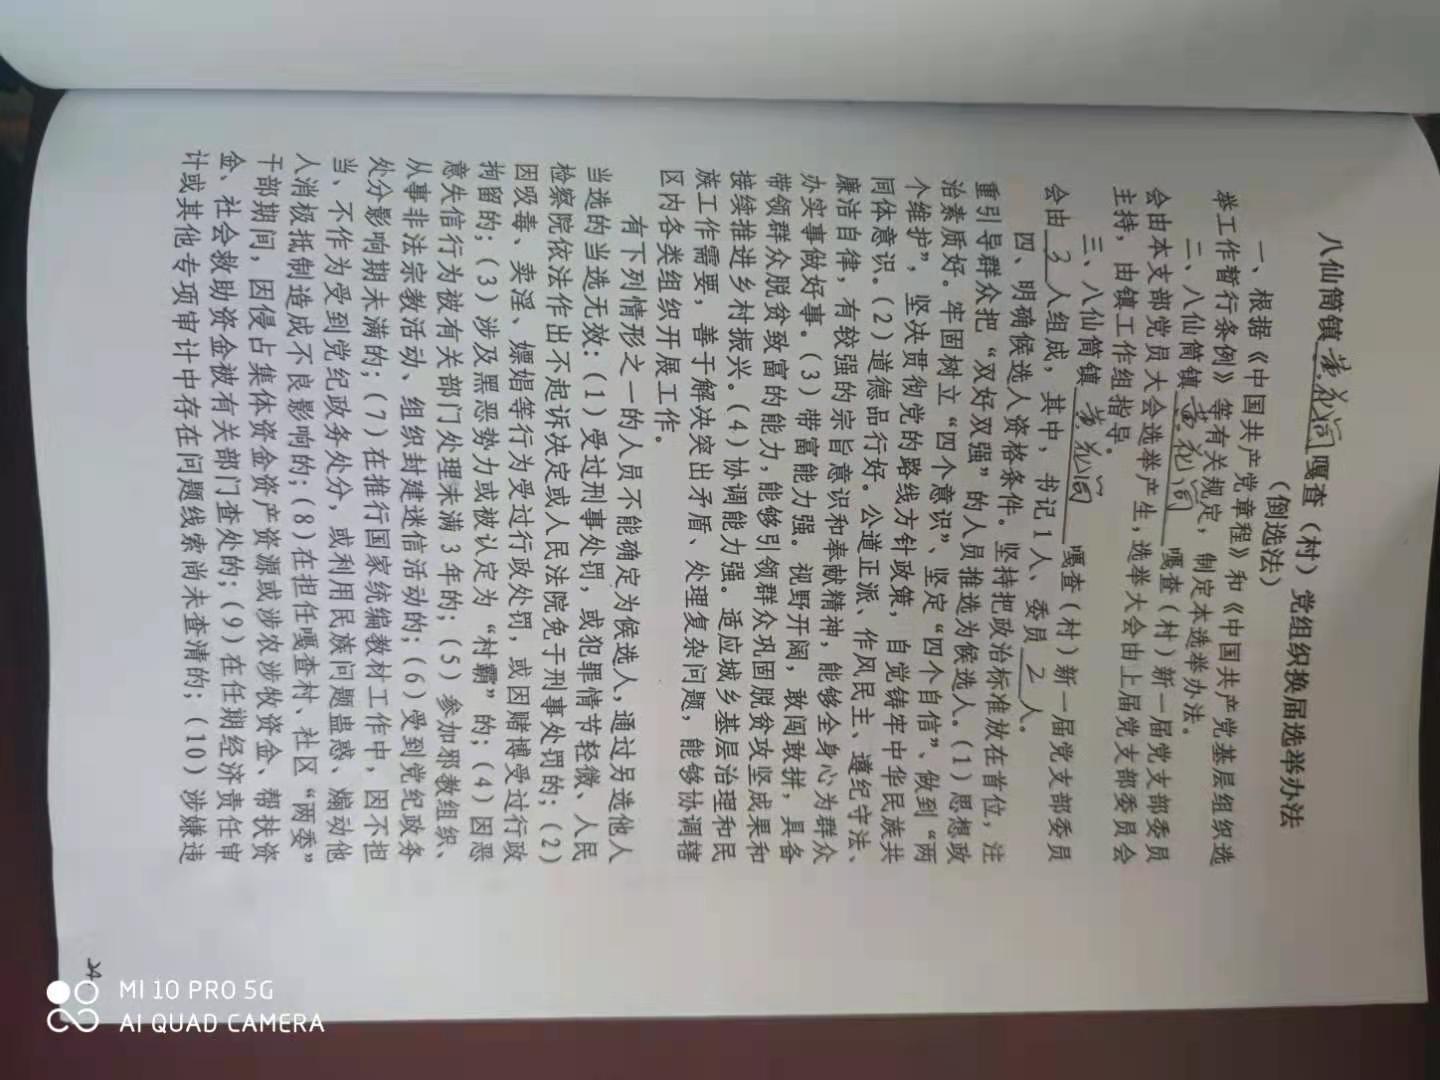 八仙筒镇 黄花筒 嘎查（村）党组织换届选举办法
（倒选法）
一、根据《中国共产党章程》和《中国共产党基层组织选
举工作暂行条例》等有关规定，制定本选举办法。
二、八仙筒镇 黄花筒 嘎查（村）新一届党支部委员
会由本支部党员大会选举产生，选举大会由上届党支部委员会
主持，由镇工作组指导。
三、八仙筒镇 黄花筒 嘎查（村）新一届党支部委员
会由 3 人组成，其中，书记1人、委员 2 人。
四、明确候选人资格条件。坚持把政治标准放在首位，注
重引导群众把“双好双强”的人员推选为候选人。（1）思想政
治素质好。牢固树立“四个意识”、坚定“四个自信”、做到“两
个维护”，坚决贯彻党的路线方针政策，自觉铸牢中华民族共
同体意识。（2）道德品行好。公道正派、作风民主、遵纪守法、
廉洁自律，有较强的宗旨意识和奉献精神，能够全身心为群众
办实事做好事。（3）带富能力强。视野开阔，敢闯敢拼，具备
带领群众脱贫致富的能力，能够引领群众巩固脱贫攻坚成果和
接续推进乡村振兴。（4）协调能力强。适应城乡基层治理和民
族工作需要，善于解决突出矛盾、处理复杂问题，能够协调辖
区内各类组织开展工作。
有下列情形之一的人员不能确定为候选人，通过另选他人
当选的当选无效：（1）受过刑事处罚，或犯罪情节轻微、人民
检察院依法作出不起诉决定或人民法院免于刑事处罚的；（2）
因吸毒、卖淫、嫖娼等行为受过行政处罚，或因赌博受过行政
拘留的；（3）涉及黑恶势力或被认定为“村霸”的；（4）因恶
意失信行为被有关部门处理未满3年的；（5）参加邪教组织、
从事非法宗教活动、组织封建迷信活动的；（6）受到党纪政务
处分影响期未满的；（7）在推行国家统编教材工作中，因不担
当、不作为受到党纪政务处分，或利用民族问题蛊惑、煽动他
人消极抵制造成不良影响的；（8）在担任嘎查村、社区“两委”
干部期间，因侵占集体资金资产资源或涉农涉牧资金、帮扶资
金、社会救助资金被有关部门查处的；（9）在任期经济责任审
计或其他专项审计中存在问题线索尚未查清的；（10）涉嫌违
24
MI 10 PRO 5G
AI QUAD CAMERA